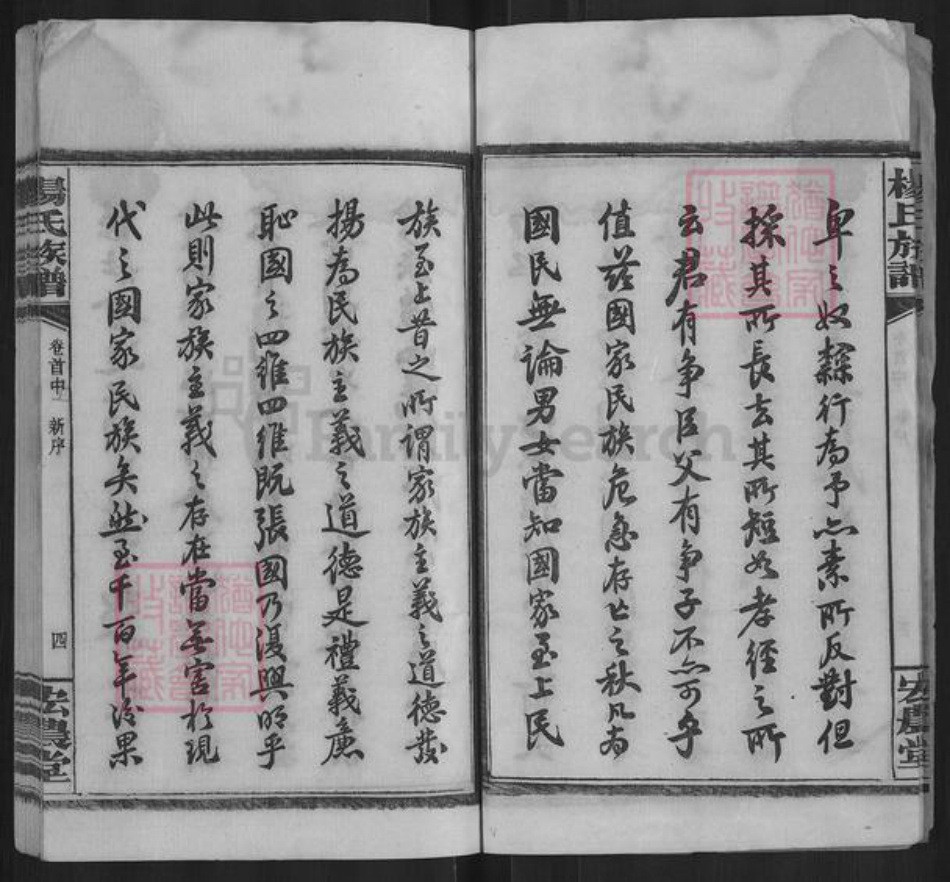 楊氏族譜
宏農堂
卑之奴隸行為予亦素所反對但
採其所長去其所短如孝經之所
云君有爭臣父有爭子不亦可乎
值茲國家民族危急存亡之秋凡為
國民無論男女當知國家至上民
族至上昔之所謂家族主義之道德發
揚為民族主義之道德是禮義廉
恥國之四維四維既張國乃復興明乎
此則家族主義之存在當無害於現
代之國家民族矣然至千百年後果
楊氏族譜
卷首中 新序
四
宏農堂
FamilySearch